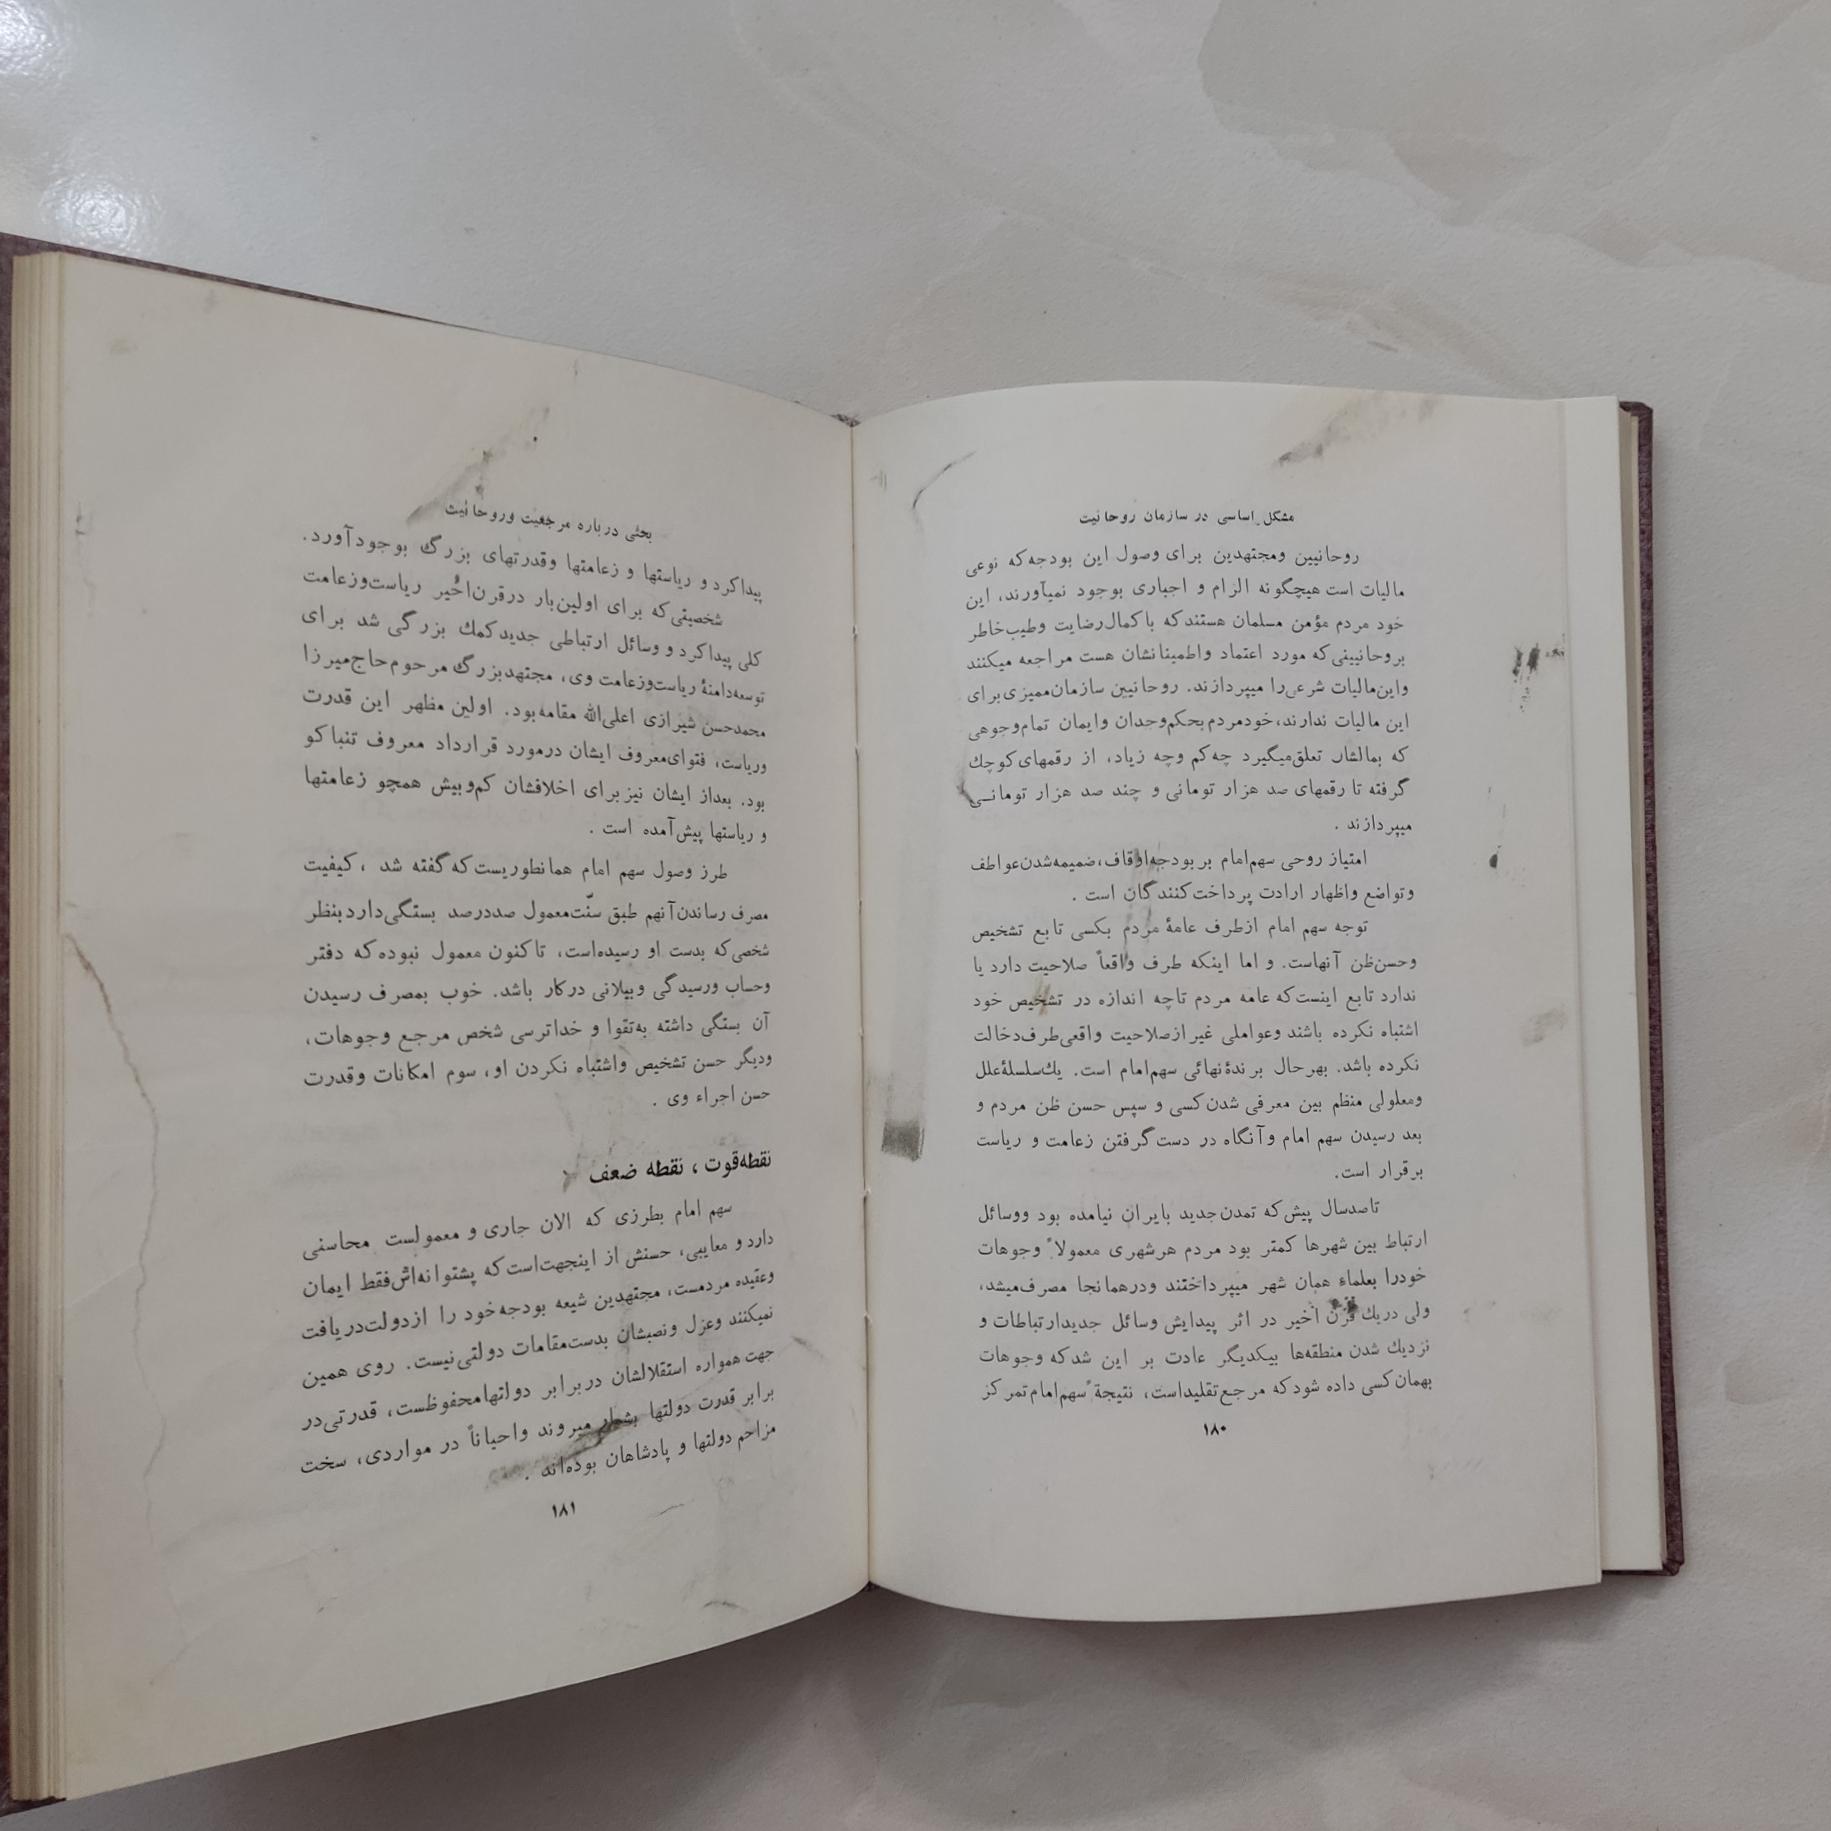 مشکل اساسی در سازمان روحانیت
روحانیین ومجتهدین برای وصول این بودجه‌که نوعی
مالیات است هیچگونه الزام و اجباری بوجود نمیآورند، این
خود مردم مؤمن مسلمان هستندکه باکمال‌رضایت وطیب‌خاطر
بروحانیینی‌که مورد اعتماد واطمینانشان هست مراجعه میکنند
واین‌مالیات شرعی‌را میپردازند. روحانیین سازمان‌ممیزی‌برای
این مالیات ندارند،خودمردم‌بحکم‌وجدان وایمان تمام‌وجوهی
که بمالشان تعلق‌میگیرد چه‌کم وچه زیاد، از رقمهای‌کوچك
گرفته تا رقمهای صد هزار تومانی و چند صد هزار تومانی
میپردازند .
امتیاز روحی سهم‌امام بر بودجه‌اوقاف،ضمیمه‌شدن‌عواطف
وتواضع واظهار ارادت پرداخت‌کنندگان است .
توجه سهم امام ازطرف عامهٔ مردم بکسی تابع تشخیص
وحسن‌ظن آنهاست. و اما اینکه طرف واقعاً صلاحیت دارد یا
ندارد تابع اینست‌که عامه مردم تاچه اندازه در تشخیص خود
اشتباه نکرده باشند وعواملی غیرازصلاحیت واقعی‌طرف‌دخالت
نکرده باشد. بهرحال برندهٔ‌نهائی سهم‌امام است. یك‌سلسلهٔ‌علل
ومعلولی منظم بین معرفی شدن‌کسی و سپس حسن ظن مردم و
بعد رسیدن سهم امام وآنگاه در دست‌گرفتن زعامت و ریاست
برقرار است.
تاصدسال پیش‌که تمدن‌جدید بایران نیامده بود ووسائل
ارتباط بین شهرها کمتر بود مردم هرشهری معمولاً وجوهات
خودرا بعلماء همان شهر میپرداختند ودرهمانجا مصرف‌میشد،
ولی دریك قرن اخیر در اثر پیدایش وسائل جدیدارتباطات و
نزدیك شدن منطقه‌ها بیکدیگر عادت بر این شدکه وجوهات
بهمان‌کسی داده شودکه مرجع‌تقلیداست، نتیجةً سهم‌امام‌تمرکز
۱۸۰
بحثی درباره مرجعیت وروحانیت
پیداکرد و ریاستها و زعامتها وقدرتهای بزرگ بوجودآورد.
شخصیتی‌که برای اولین‌بار درقرن‌اخیر ریاست‌وزعامت
کلی پیداکرد و وسائل ارتباطی جدیدکمك بزرگی شد برای
توسعه‌دامنهٔ ریاست‌وزعامت وی، مجتهدبزرگ مرحوم‌حاج‌میرزا
محمدحسن شیرازی اعلی‌الله مقامه‌بود. اولین مظهر این قدرت
وریاست، فتوای‌معروف ایشان درمورد قرارداد معروف تنباکو
بود. بعداز ایشان نیزبرای اخلافشان کم‌وبیش همچو زعامتها
و ریاستها پیش‌آمده است .
طرز وصول سهم امام همانطوریست‌که‌گفته شد ، کیفیت
مصرف رساندن‌آنهم طبق سنّت‌معمول صددرصد بستگی‌دارد‌بنظر
شخصی‌که بدست او رسیده‌است، تاکنون معمول نبوده‌که دفتر
وحساب ورسیدگی وبیلانی درکار باشد. خوب بمصرف رسیدن
آن بستگی داشته به‌تقوا و خداترسی شخص مرجع وجوهات،
ودیگر حسن تشخیص واشتباه نکردن او، سوم امکانات وقدرت
حسن اجراء وی .
نقطه‌قوت ، نقطه ضعف
سهم امام بطرزی که الان جاری و معمولست محاسنی
دارد و معایبی، حسنش از اینجهت‌است‌که پشتوانه‌اش‌فقط ایمان
وعقیده مردمست، مجتهدین شیعه بودجه‌خود را ازدولت‌دریافت
نمیکنند وعزل ونصبشان بدست‌مقامات دولتی‌نیست. روی همین
جهت همواره استقلالشان دربرابر دولتهامحفوظست، قدرتی‌در
برابر قدرت دولتها بشمار میروند واحیاناً در مواردی، سخت
مزاحم دولتها و پادشاهان بوده‌اند .
۱۸۱